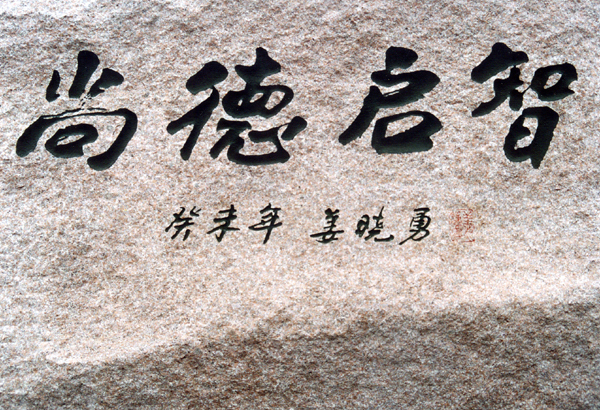 尚德启智
癸未年 姜晓勇